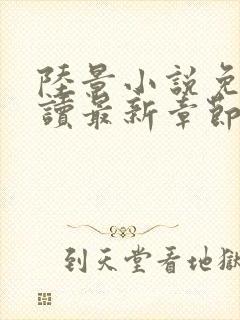 陸景小說免
讀最新章節
到天堂看地獄